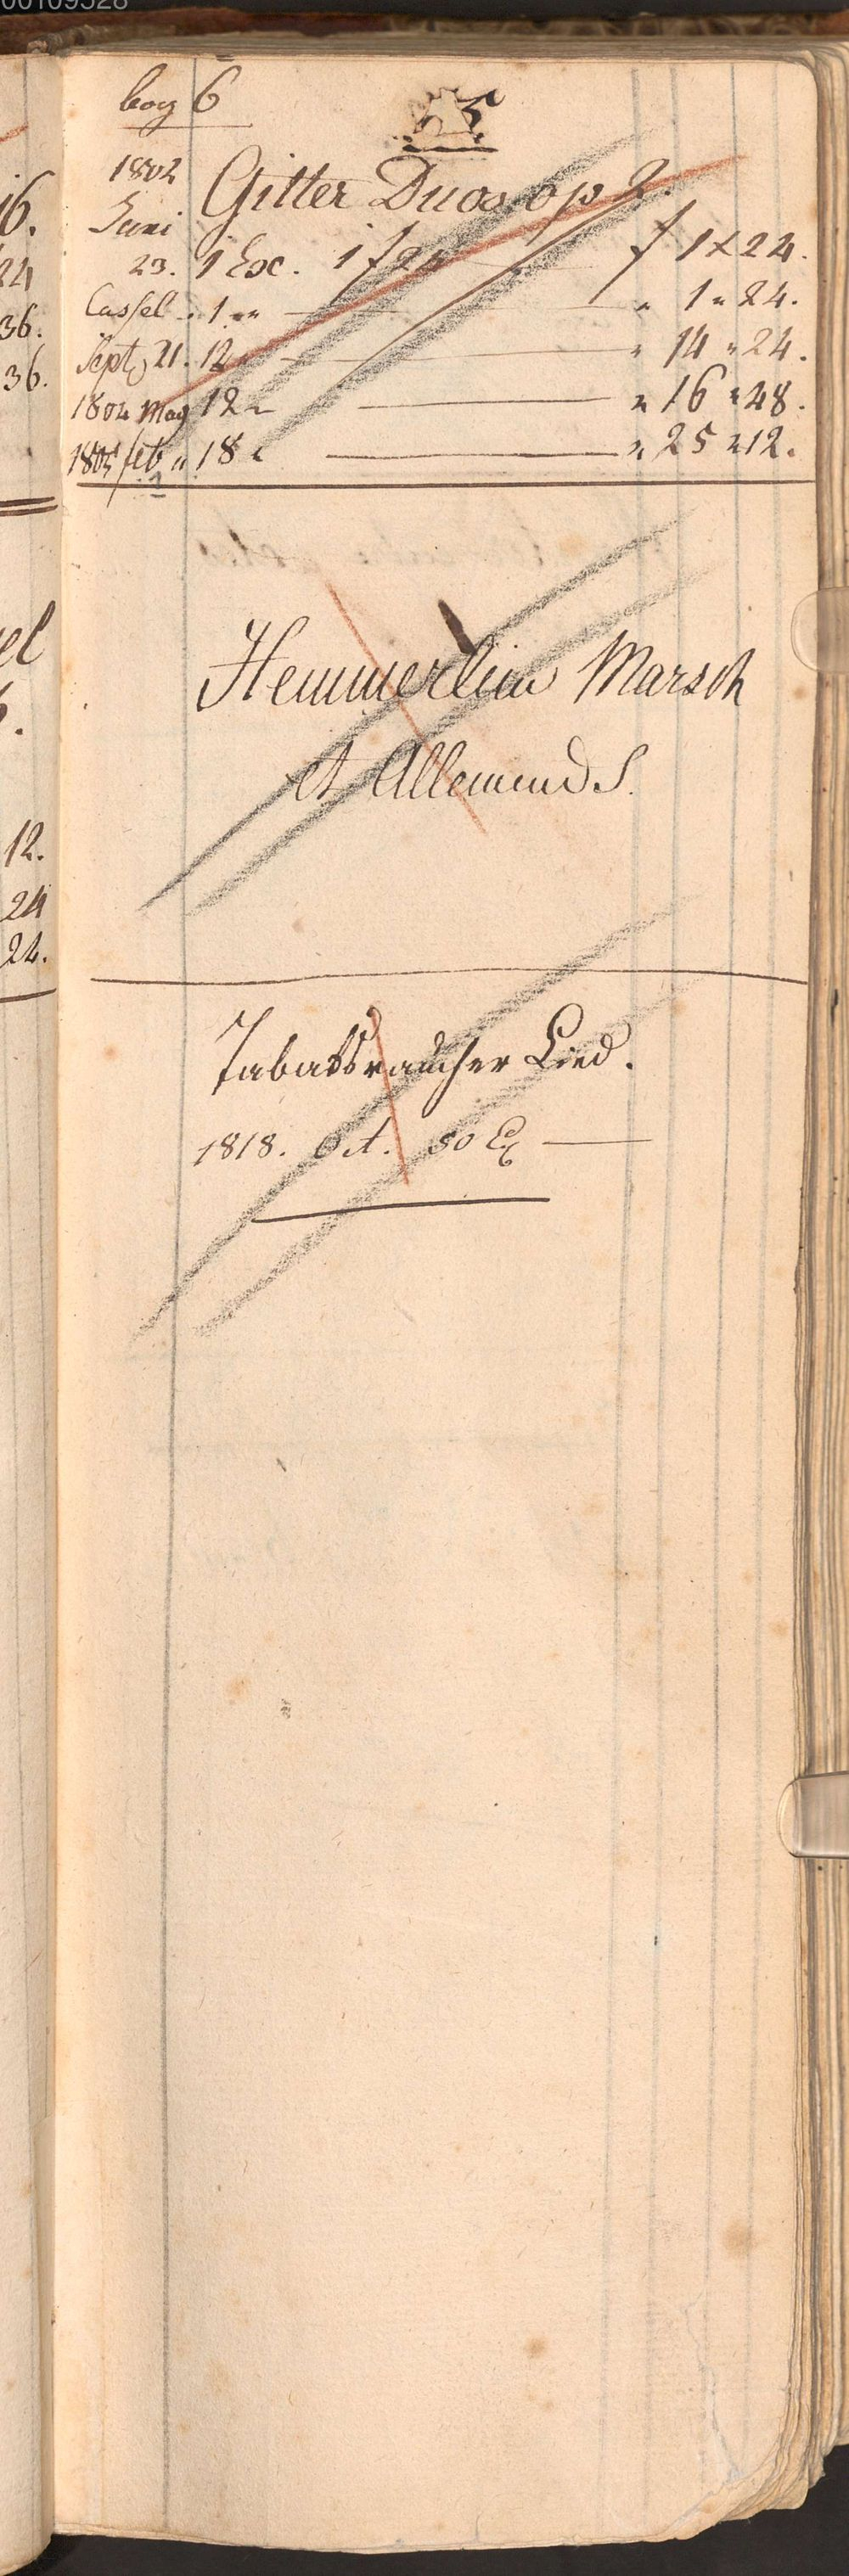 bog 6
5
1802 Gitter Duos op 2.
Juni
23. 1 Exc. 1 f 24 f 1 x 24.
Cassel " 1 " " 1 " 24.
Sept 21. 12 " " 14 " 24.
1804 May 12 " " 16 " 48.
1805 feb " 18 " " 25 " 12.
Hemmerlein Marsch
et Allemand S.
Tabaksraucher Lied.
1818. Oct. 50 Ex
16.
24
36.
36.
el
12.
24
24.